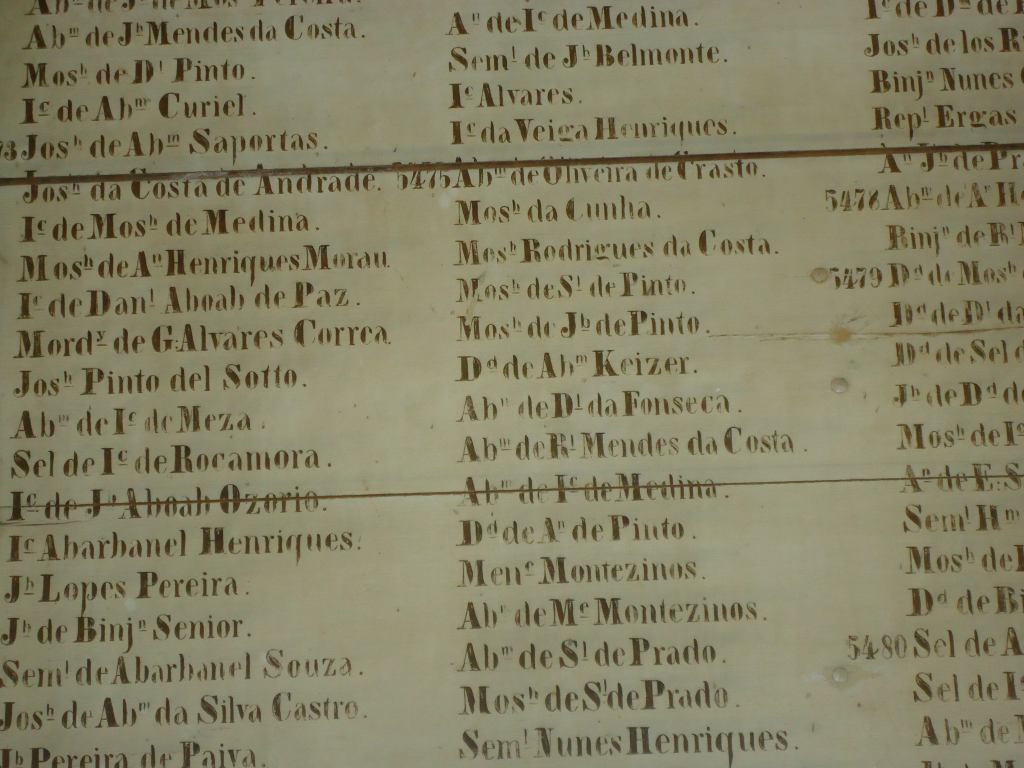 Abᵐ de Jᵇ Mendes da Costa.
Mosʰ de Dˡ Pinto.
Iᶜ de Abᵐ Curiel.
73 Josʰ de Abᵐ Saportas.
Josʰ da Costa de Andrade.
Iᶜ de Mosʰ de Medina.
Mosʰ de Aⁿ Henriques Morau
Iᶜ de Danˡ Aboab de Paz.
Mordʸ de G. Alvares Correa.
Josʰ Pinto del Sotto.
Abᵐ de Iᶜ de Meza.
Sel de Iᶜ de Rocamora.
Iᶜ de Jᵃ Aboab Ozorio.
Iᶜ Abarbanel Henriques.
Jᵇ Lopes Pereira.
Jᵇ de Binjⁿ Senior.
Semˡ de Abarbanel Souza.
Josʰ de Abᵐ da Silva Castro.
Jᵇ Pereira de Paiva.
Aⁿ de Iᶜ de Medina.
Semˡ de Jᵇ Belmonte.
Iᶜ Alvares.
Iᶜ da Veiga Henriques.
5475 Abᵐ de Oliveira de Crasto.
Mosʰ da Cunha.
Mosʰ Rodrigues da Costa.
Mosʰ de Sˡ de Pinto.
Mosʰ de Jᵇ de Pinto.
Dᵈ de Abᵐ Keizer.
Abᵐ de Dˡ da Fonseca.
Abᵐ de Rˡ Mendes da Costa.
Abᵐ de Iᶜ de Medina.
Dᵈ de Aⁿ de Pinto.
Menᶜ Montezinos.
Abᵐ de Mᶜ Montezinos.
Abᵐ de Sˡ de Prado.
Mosʰ de Sˡ de Prado.
Semˡ Nunes Henriques.
Josʰ de los
Binjⁿ Nunes
Repˡ Ergas
Aⁿ Jᵇ de
5478 Abᵐ de Aʳ
Binjⁿ de Rˡ
5479 Dᵈ de Mosʰ
Dᵈ de Dˡ da
Dᵈ de Sel
Jᵇ de Dᵈ
Mosʰ de Iᶜ
Aⁿ de E. S
Semˡ Hᵐ
Mosʰ de
Dᵈ de
5480 Sel de A
Sel de
Abᵐ de